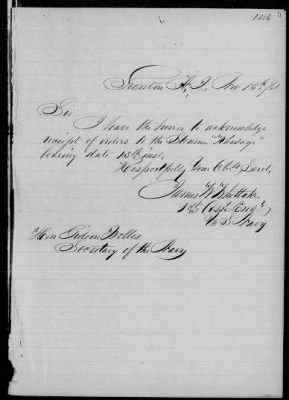 1216
Trenton N, J, Nov 15th/61
Sir
I have the honor to acknowledge
receipt of orders to the Steamer "Kanawga"
bearing date 13th inst,
Respectfully Your Obdt, Servt,
James W Whittaker
1st Asst Engr,
U. S Navy
Hon Gideon Welles
Secretary of the Navy